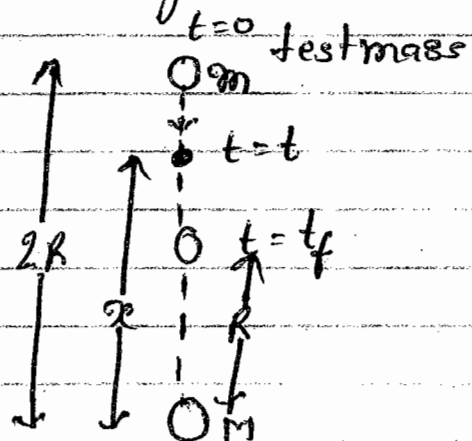 t=0 testmass
m
t=t
2R t=tf
x R
M